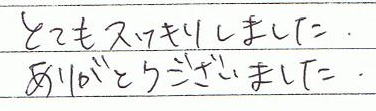 とてもスッキリしました.
ありがとうございました.